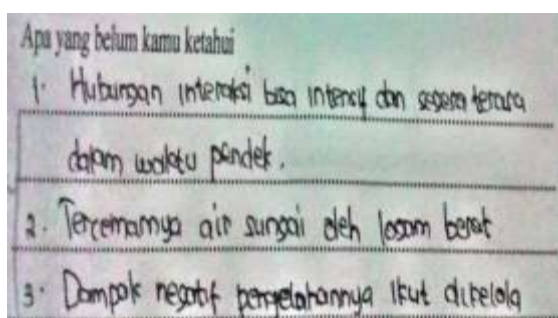 Apa yang belum kamu ketahui
1. Hubungan interaksi bisa intensif dan segera terasa
dalam waktu pendek.
2. Tercemarnya air sungai oleh logam berat
3. Dampak negatif pengelolaannya ikut dikelola